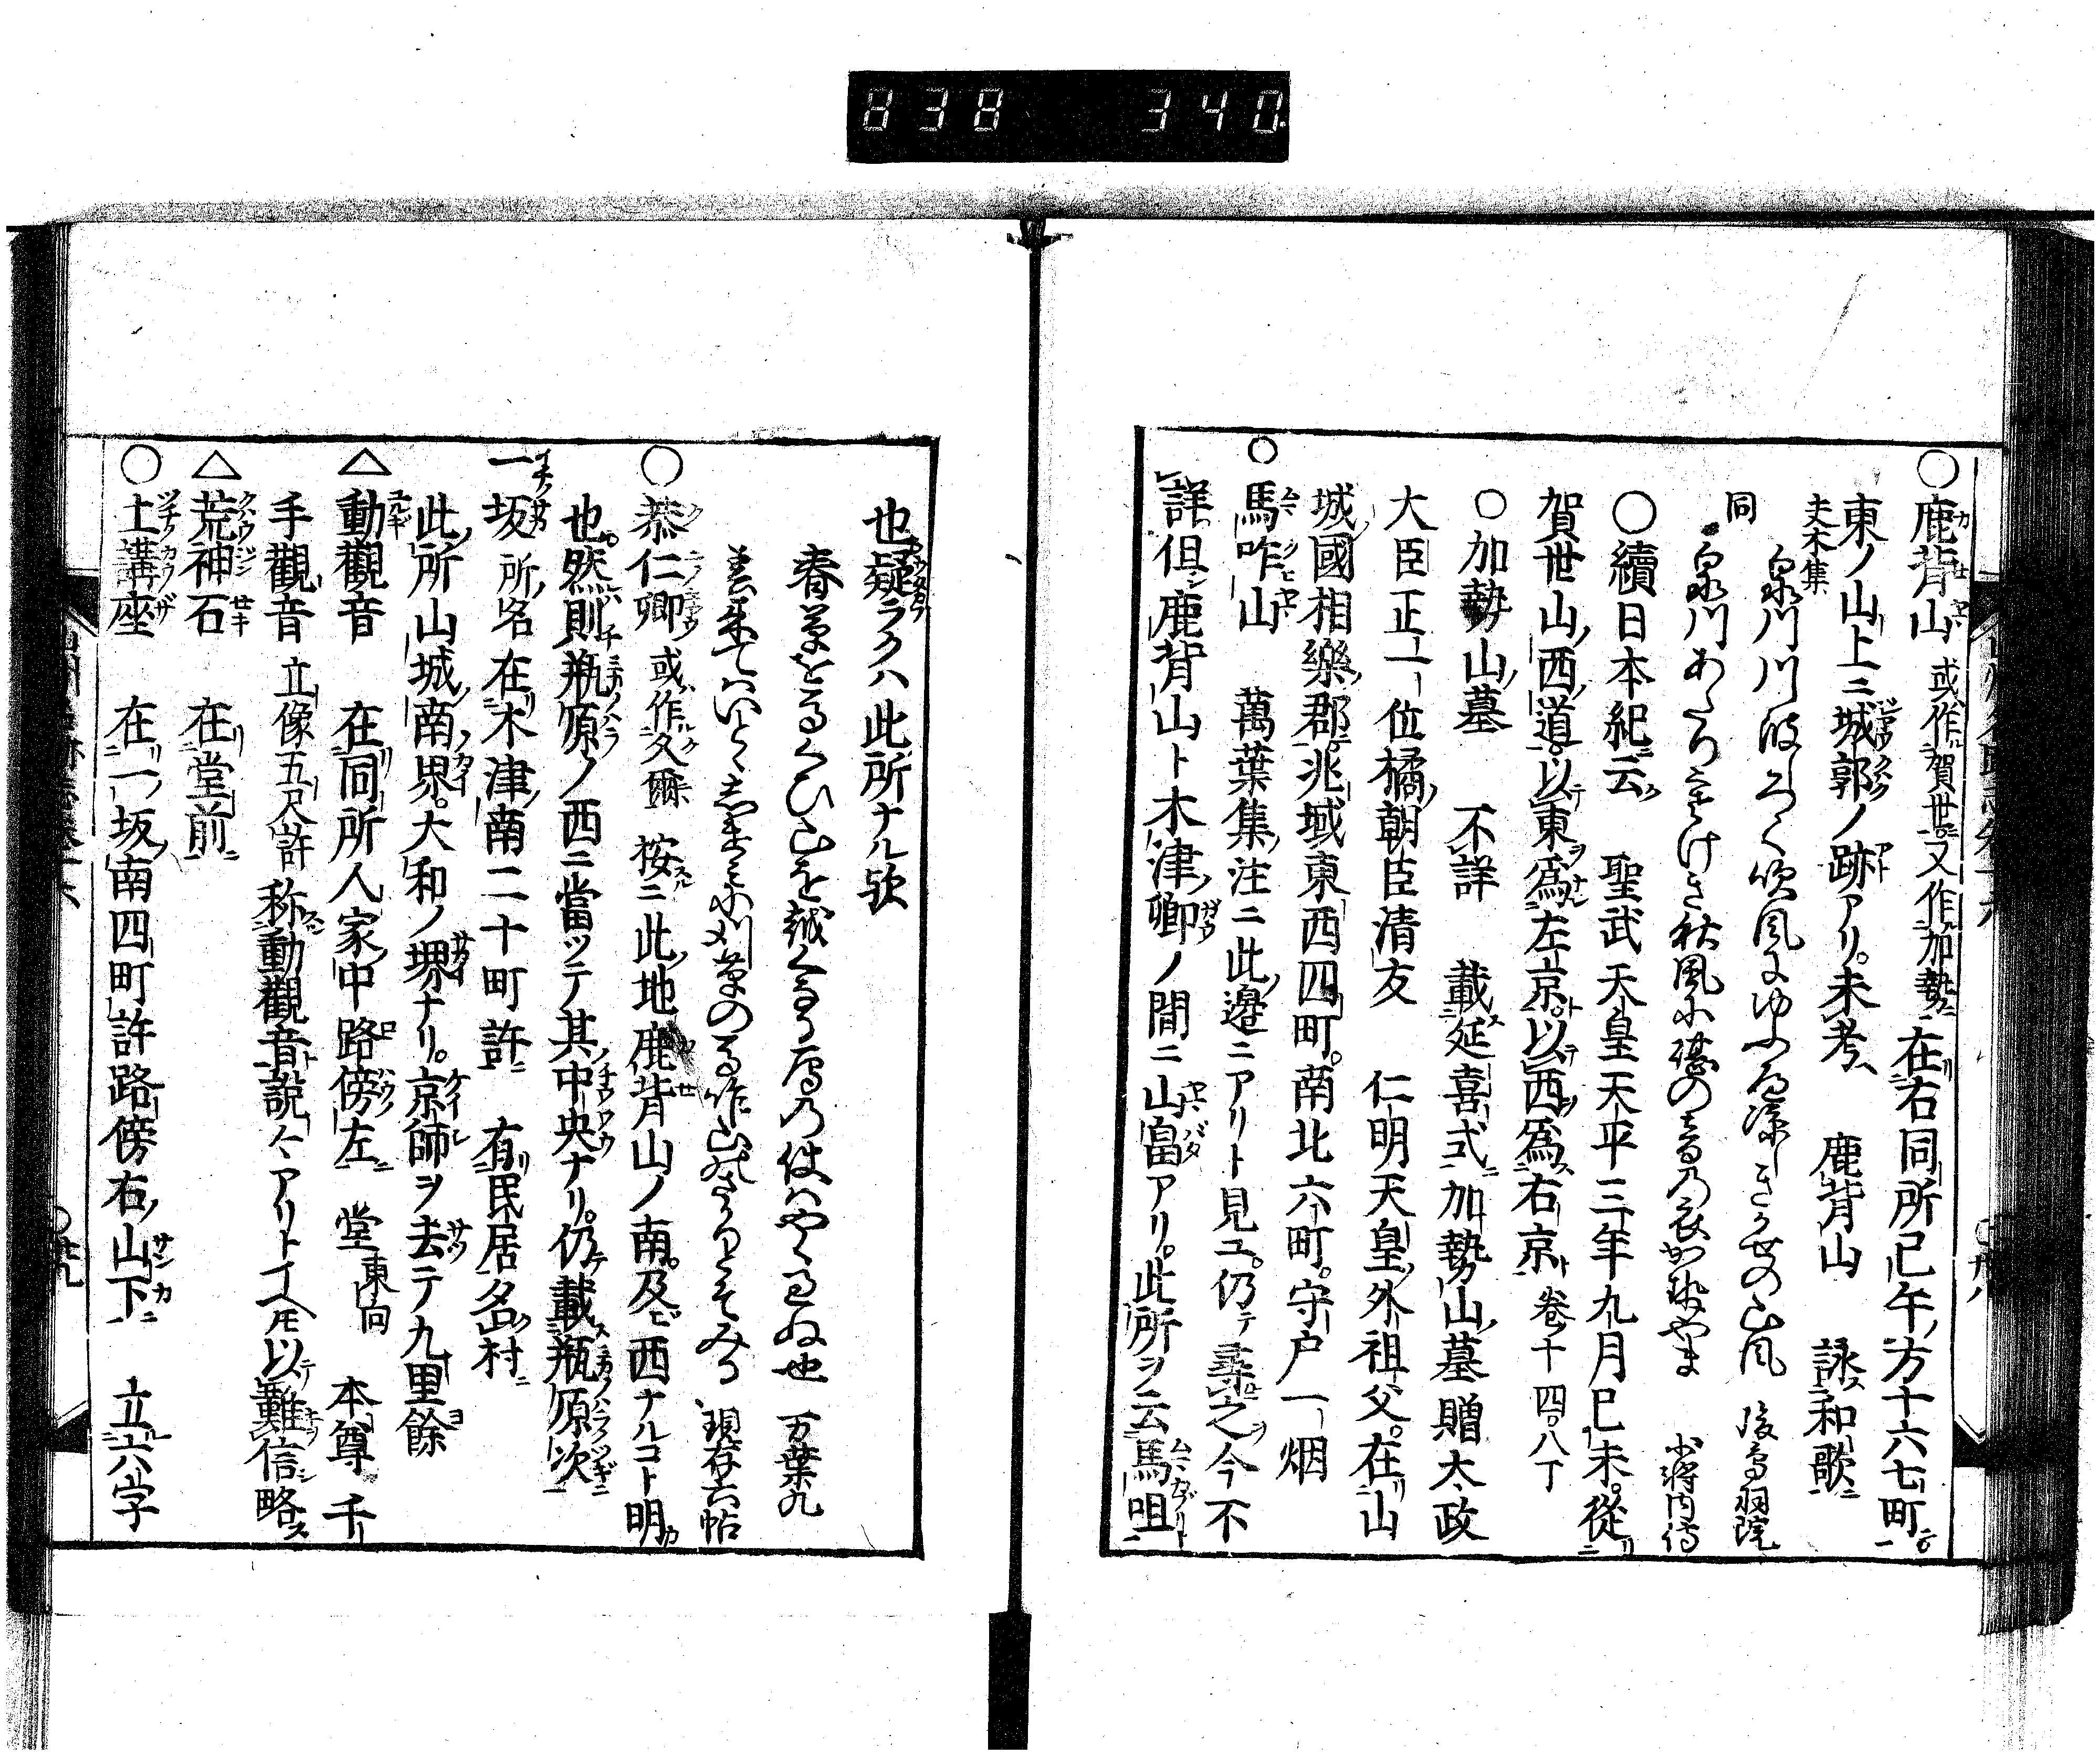 838 340
○鹿背山 或作賀世又作加勢 在右同所巳午ノ方十六七町
東ノ山上ニ城郭ノ跡アリ。未考 鹿背山 詠和歌
夫木集
泉川川波ろく吹風にゆふる涼しきかせの山風 後鳥羽院
同
泉川あたりさむけき秋風に誰の 衣かせやま 少将内侍
○續日本紀云 聖武天皇天平三年九月巳未。從
賀世山ノ西ノ道。以東爲左京。以西爲右京 巻十四八丁
○加勢山ノ墓 不詳 載延喜式加勢山ノ墓贈太政
大臣正一位橘ノ朝臣清友 仁明天皇ノ外祖父。在山
城ノ國相樂ノ郡。兆域東西四町。南北六町。守戸一烟
○馬咋山 萬葉集ノ注ニ此ノ邊ニアリト見ユ。仍テ尋之今不
詳。但シ鹿背山ト木津ノ郷ノ間ニ山畠アリ。此所ヲ云馬咀
也疑ラクハ此所ナル欤
春草を馬くひ山を越くる雁の使はやとるぬ也 万葉九
春来てはいとゝしけミに刈草の馬咋山 そみつ 現存六帖
○恭仁郷 或作久爾 按ニ此ノ地鹿背山ノ南。及ヒ西ナルコト明カ
也。然則瓶ノ原ノ西ニ當ツテ其ノ中央ナリ。仍載瓶ノ原ノ次
一ノ坂 所ノ名 在木津ノ南二十町許 有民居名村
此ノ所山城ノ南界。大和ノ堺ナリ。京師ヲ去テ九里餘
△動觀音 在同所人家ノ中路傍左 堂東向 本尊 千
手觀音 立像五尺許 称動觀音ト説々アリトイヘ𪜈以難信略ス
△荒神石 在堂前
○土講座 在一坂ノ南四町許路傍右ノ山下 立六字